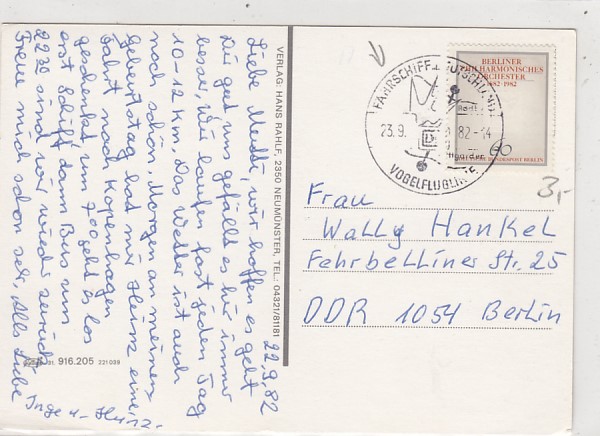 22.9.82
Liebe Mutti, wir hoffen es geht
Dir gut uns gefällt es hi immer
besser, wir laufen fast jeden Tag
10-12 Km. Das Wetter ist auch
noch schön, Morgen an meinen
Geburtstag hat mir Heinz eine
Fahrt nach Kopenhagen
geschenkt um 700 geht es los
erst Schiff dann Bus um
22 30 sind wir wieder zurück
Freue mich schon sehr, Alles Liebe
Inge u. Heinz.
VERLAG: HANS RAHLF, 2350 NEUMÜNSTER, TEL.: 04321/81181
31. 916.205 221 039
FÄHRSCHIFF DEUTSCHLAND
23.9. 82-14
VOGELFLUGLINIE
BERLINER
PHILHARMONISCHES
ORCHESTER
1882-1982
60
DEUTSCHE BUNDESPOST BERLIN
3,-
Frau
Wally Hankel
Fehrbelliner Str. 25
DDR 1054 Berlin